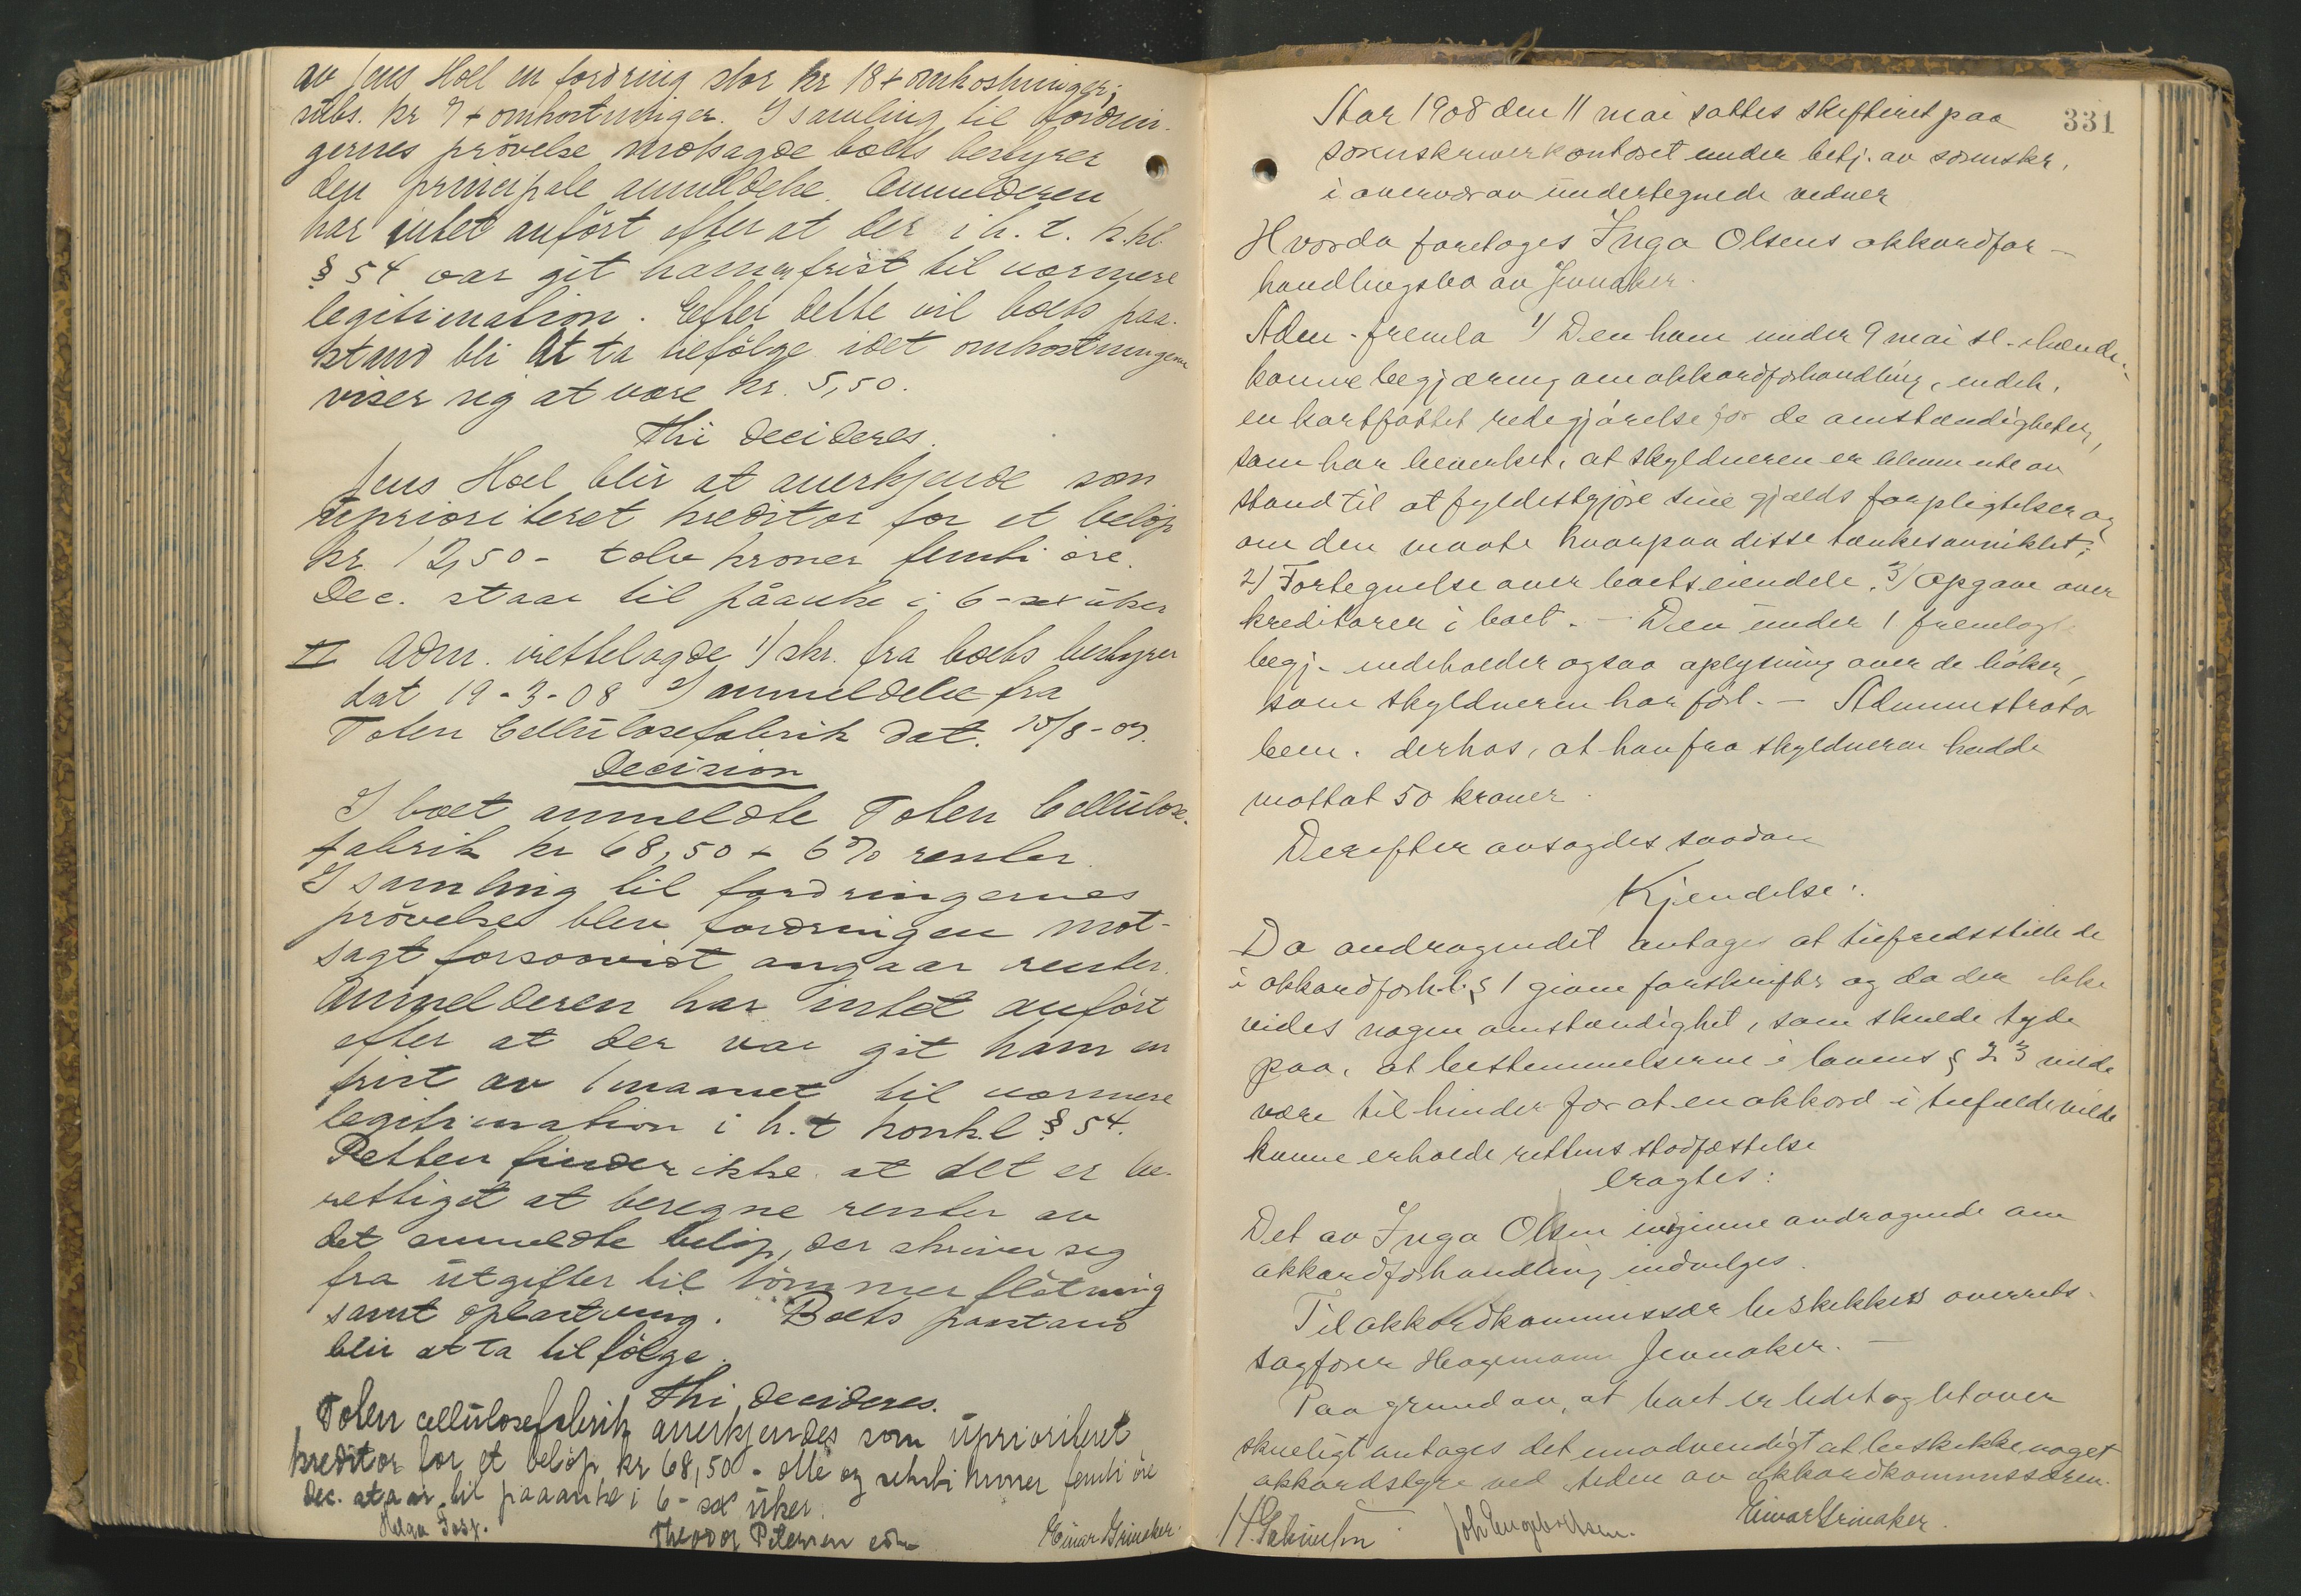 av Jens Hoel en fordring stor kr 18 + omkostninger;
subs. kr 7 + omkostninger. I samling til fordrin-
gernes prövelse motsagde boets bestyrer
den principale anmeldelse. Anmelderen
har intet anfört efter at der i h. t. k.kl.
§ 54 var git ham en frist til nærmere
legitimation. Efter dette vil boets paa-
stand bli at ta tilfölge idet omkostningerne
viser sig at være kr. 5,50.
Thi decideres.
Jens Hoel blir at anerkjende som
uprioriteret kreditor for et belöp
kr. 12,50 - tolv kroner femti öre.
Dec. staar til påanke i 6 - sex uker
II Adm. irettelagde 1) skr. fra boets bestyrer
dat 19-3-08 2) anmeldelse fra
Toten Cellulosefabrik dat. 10/8-07.
Decision
I boet anmeldte Toten Cellulose-
fabrik kr 68,50 + 6% renter.
I samling til fordringernes
prövelse blev fordringen mot-
sagt forsaavidt angaar renter.
Anmelderen har intet anfört
efter at der var git ham en
frist av 1 maanet til nærmere
legitimation i h.t konk.l § 54.
Retten finder ikke at det er be-
rettiget at beregne renter av
det anmeldte belöp, der skriver seg
fra utgifter til tömmerflötning
samt oplastning. Boets paastand
blir at ta tilfölge.
Thi decideres.
Toten cellulosefabrik anerkjendes som uprioriteret
kreditor for et belöp kr 68,50 - otte og seksti kroner femti öre
Dec. staar til paaanke i 6 - sex uker.
Helga
Theodor Petersen
Einar Grinaker.
331
Aar 1908 den 11 mai sattes skifteret paa
sorenskriverkontoret under betj. av sorenskr.
i overvær av undertegnede vidner
Hvorda foretoges Inga Olsens akkordfor-
handlingsbo av Jevnaker.
Adm. fremla 1) Den ham under 9 mai sl. ihænde-
komne begjæring om akkordforhandling, indeh.
en kortfattet redegjörelse for de omstændigheter,
som har bevirket, at skyldneren er bleven ute av
stand til at fyldestgjöre sine gjælds forpligtelser og
om den maate hvorpaa disse tænkes avviklet;
2) Fortegnelse over boets eiendele. 3) Opgave over
kreditorer i boet. - Den under 1 fremlagte
begj. indeholder ogsaa oplysning over de böker,
som skyldneren har fört. - Administrator
bem. derhos, at han fra skyldneren hadde
mottat 50 kroner.
Derefter avsagdes saadan
Kjendelse:
Da andragendet antages at tilfredsstille de
i akkordforh.l. § 1 givne forskrifter og da der ikke
vides nogen omstændighet, som skulde tyde
paa, at bestemmelserne i lovens § 23 vilde
være til hinder for at en akkord i tilfælde vilde
kunne erholde rettens stadfæstelse
eragtes:
Det av Inga Olsen indgivne andragende om
akkordforhandling indvilges.
Til akkordkommissær beskikkes overrets-
sagförer Hagemann Jevnaker. -
Paa grund av, at boet er lidet og let over
skueligt antages det unödvendigt at beskikke noget
akkordstyre ved siden av akkordkommissæren.
Joh Engebretsen.
Einar Grinaker.